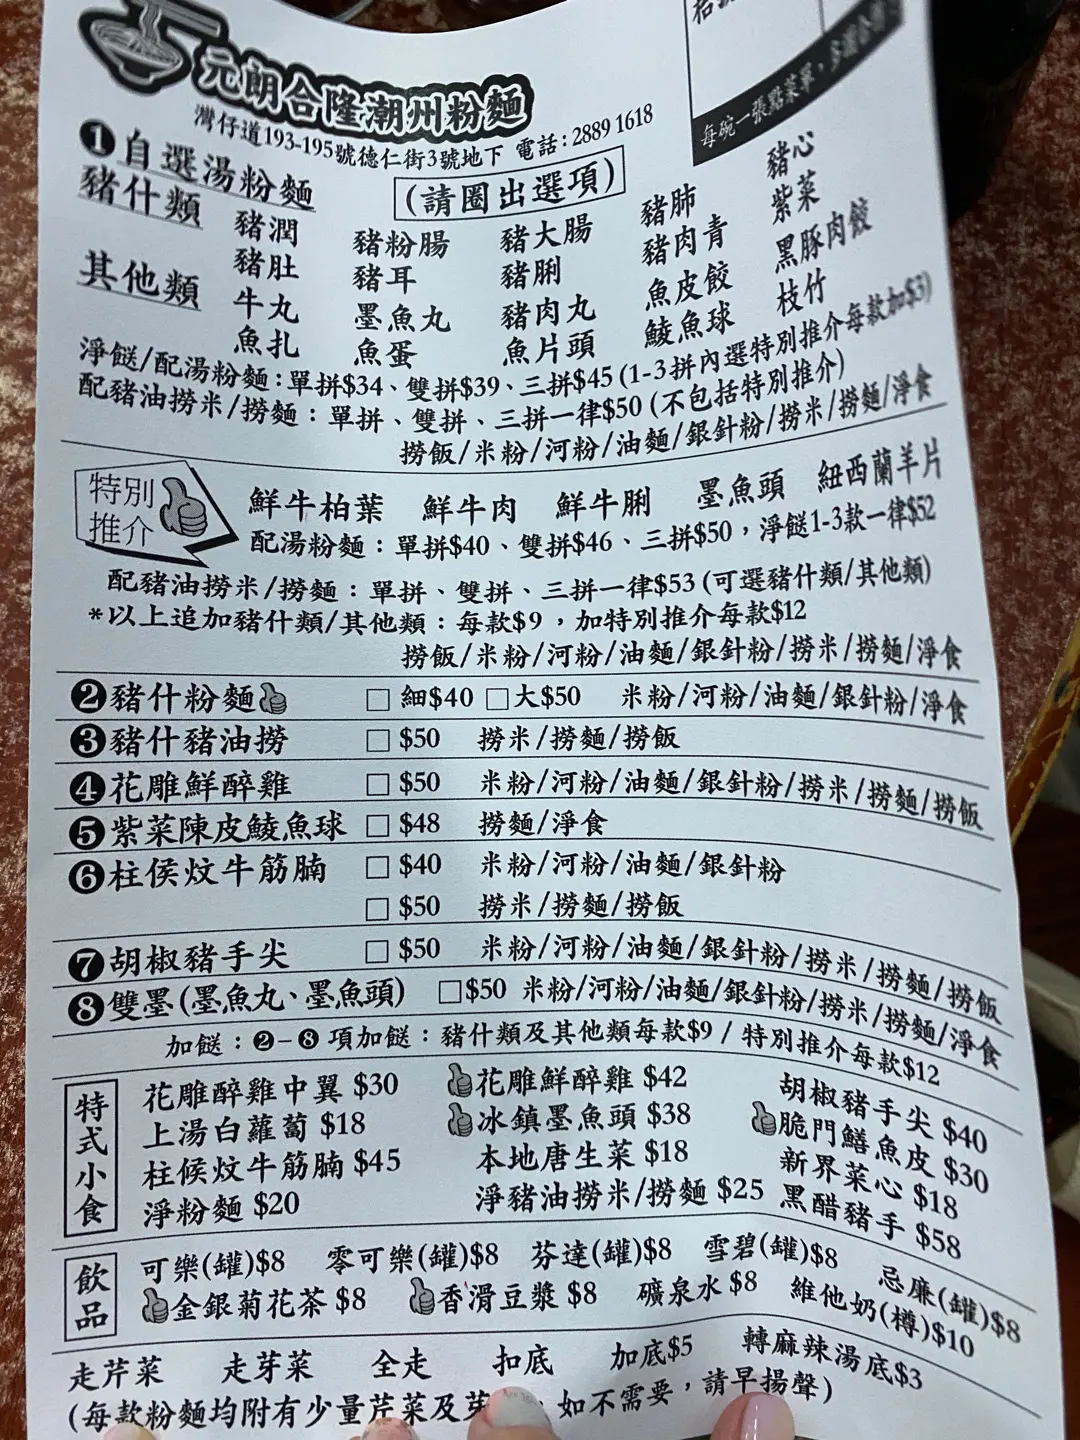 元朗合隆潮州粉麵
灣仔道193-195號德仁街3號地下 電話:2889 1618
每碗一張點菜單,
❶自選湯粉麵 (請圈出選項)
豬什類 豬潤 豬粉腸 豬大腸 豬肺 豬心
豬肚 豬耳 豬脷 豬肉青 紫菜
其他類 牛丸 墨魚丸 豬肉丸 魚皮餃 黑豚肉餃
魚扎 魚蛋 魚片頭 鯪魚球 枝竹
淨餸/配湯粉麵:單拼$34、雙拼$39、三拼$45 (1-3拼內選特別推介每款加$3)
配豬油撈米/撈麵:單拼、雙拼、三拼一律$50 (不包括特別推介)
撈飯/米粉/河粉/油麵/銀針粉/撈米/撈麵/淨食
特別推介 鮮牛柏葉 鮮牛肉 鮮牛脷 墨魚頭 紐西蘭羊片
配湯粉麵:單拼$40、雙拼$46、三拼$50,淨餸1-3款一律$52
配豬油撈米/撈麵:單拼、雙拼、三拼一律$53 (可選豬什類/其他類)
*以上追加豬什類/其他類:每款$9,加特別推介每款$12
撈飯/米粉/河粉/油麵/銀針粉/撈米/撈麵/淨食
❷豬什粉麵 □ 細$40 □大$50 米粉/河粉/油麵/銀針粉/淨食
❸豬什豬油撈 □ $50 撈米/撈麵/撈飯
❹花雕鮮醉雞 □ $50 米粉/河粉/油麵/銀針粉/撈米/撈麵/撈飯
❺紫菜陳皮鯪魚球 □ $48 撈麵/淨食
❻柱侯炆牛筋腩 □ $40 米粉/河粉/油麵/銀針粉
□ $50 撈米/撈麵/撈飯
❼胡椒豬手尖 □ $50 米粉/河粉/油麵/銀針粉/撈米/撈麵/撈飯
❽雙墨(墨魚丸、墨魚頭) □$50 米粉/河粉/油麵/銀針粉/撈米/撈麵/淨食
加餸:❷-❽項加餸:豬什類及其他類每款$9 / 特別推介每款$12
特式小食
花雕醉雞中翼 $30 花雕鮮醉雞 $42 胡椒豬手尖 $40
上湯白蘿蔔 $18 冰鎮墨魚頭 $38 脆門鱔魚皮 $30
柱候炆牛筋腩 $45 本地唐生菜 $18 新界菜心 $18
淨粉麵 $20 淨豬油撈米/撈麵 $25 黑醋豬手 $58
飲品
可樂(罐)$8 零可樂(罐)$8 芬達(罐)$8 雪碧(罐)$8 忌廉(罐)$8
金銀菊花茶 $8 香滑豆漿 $8 礦泉水 $8 維他奶(樽)$10
走芹菜 走芽菜 全走 扣底 加底$5 轉麻辣湯底$3
(每款粉麵均附有少量芹菜及芽 如不需要,請早揚聲)